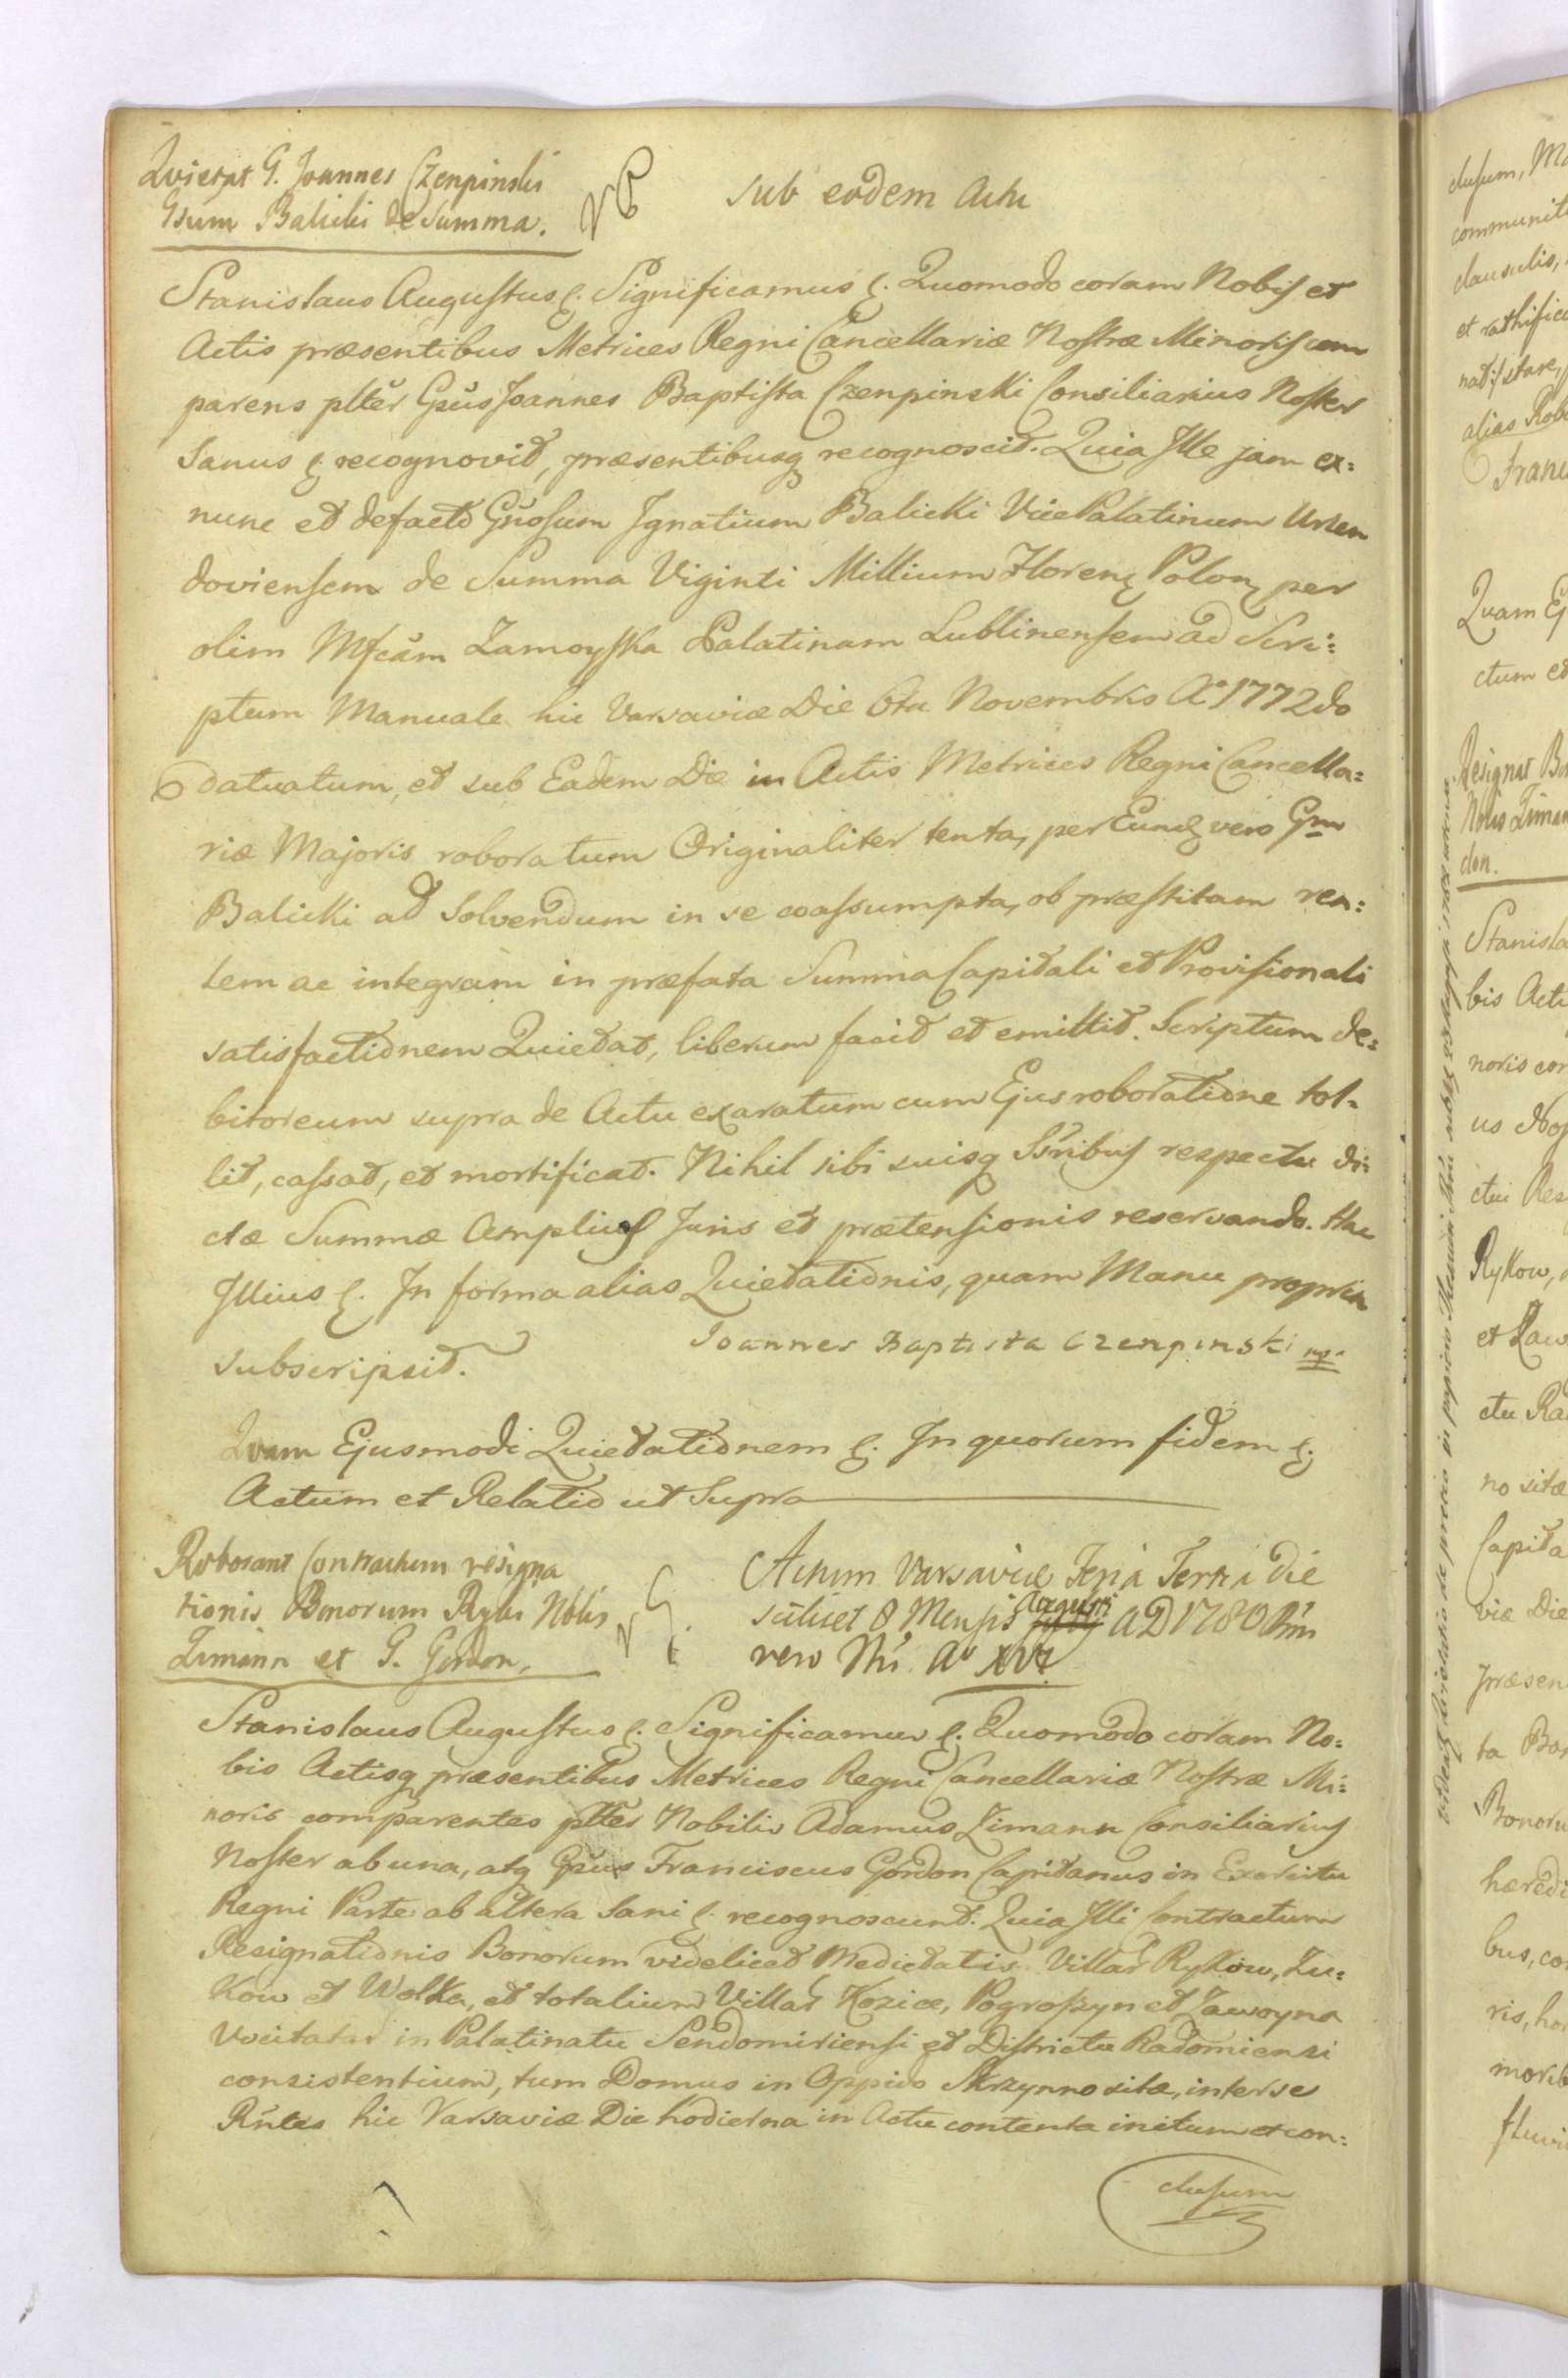 Quietat G. Joannes Czenpinski
Gsum Balicki de Summa.
Sub eodem Actu
Stanislaus Augustus &. Significamus &. Quomodo coram Nobis et
Actis præsentibus Metrices Regni Cancellariæ Nostræ Minoris com
parens plter Gsus Joannes Baptista Czenpinski Consiliarius Noster
Sanus &. recognovit, præsentibusq recognoscit. Quia Ille jam ex=
nunc et defacto Gnosum Ignatium Balicki Vice Palatinum Urzen
doviensem de Summa Viginti Millium Floren Polon per
olim Mfcam Zamoyska Palatinam Lublinensem ad Scri=
ptum Manuale hic Varsaviæ Die 6ta Novembris Ao 1772do
datuatum, et sub Eadem Die in Actis Metrices Regni Cancella=
riæ Majoris roboratum Originaliter tenta, per Eund vero Gm
Balicki ad Solvendum in se coassumpta, ob præstitam rea=
lem ac integram in præfata Summa Capitali et Provisionali
satisfactionem Quietat, liberum facit et emittit. Scriptum de=
bitoreum supra de Actu exaratum cum Ejus roboratione tol=
lit, cassat, et mortificat. Nihil sibi suisq Ssribus respectu di=
ctæ Summæ Amplius Juris et prætensionis reservando. Hac
Illius &. In forma alias Quietationis, quam Manu propria
subscripsit.
Joannes Baptista Czenpinski mp.
Quam Ejusmodi Quietationem &. In quorum fidem &.
Actum et Relatio ut Supra
Roborant Contractum resigna
tionis Bonorum Ryki Nobis
Zimann et G. Gordon.
Actum Varsaviæ Feria Tertia Die
scilicet 8 Mensis Augusti AD 1780 Rmi
vero Nri Ao XVI
Stanislaus Augustus &. Significamus &. Quomodo coram No=
bis Actisq præsentibus Metrices Regni Cancellariæ Nostræ Mi=
noris comparentes plter Nobilis Adamus Zimann Consiliarius
Noster ab una, atq Gsus Franciscus Gordon Capitanus in Exercitu
Regni Parte ab altera Sani &. recognoscunt. Quia Illi Contractum
Resignationis Bonorum videlicet Medietatis Villar Rykow, Zu=
kow et Wolka, et totalium Villar Kozice, Pogroszyn et Zawoyna
Vocitatar in Palatinatu Sendomiriensi et Districtu Radomiensi
consistentium, tum Domus in Oppido Skrzynno sitæ, inter se
Rntes hic Varsaviæ Die hodierna in Actu contenta initum et con=
clusum